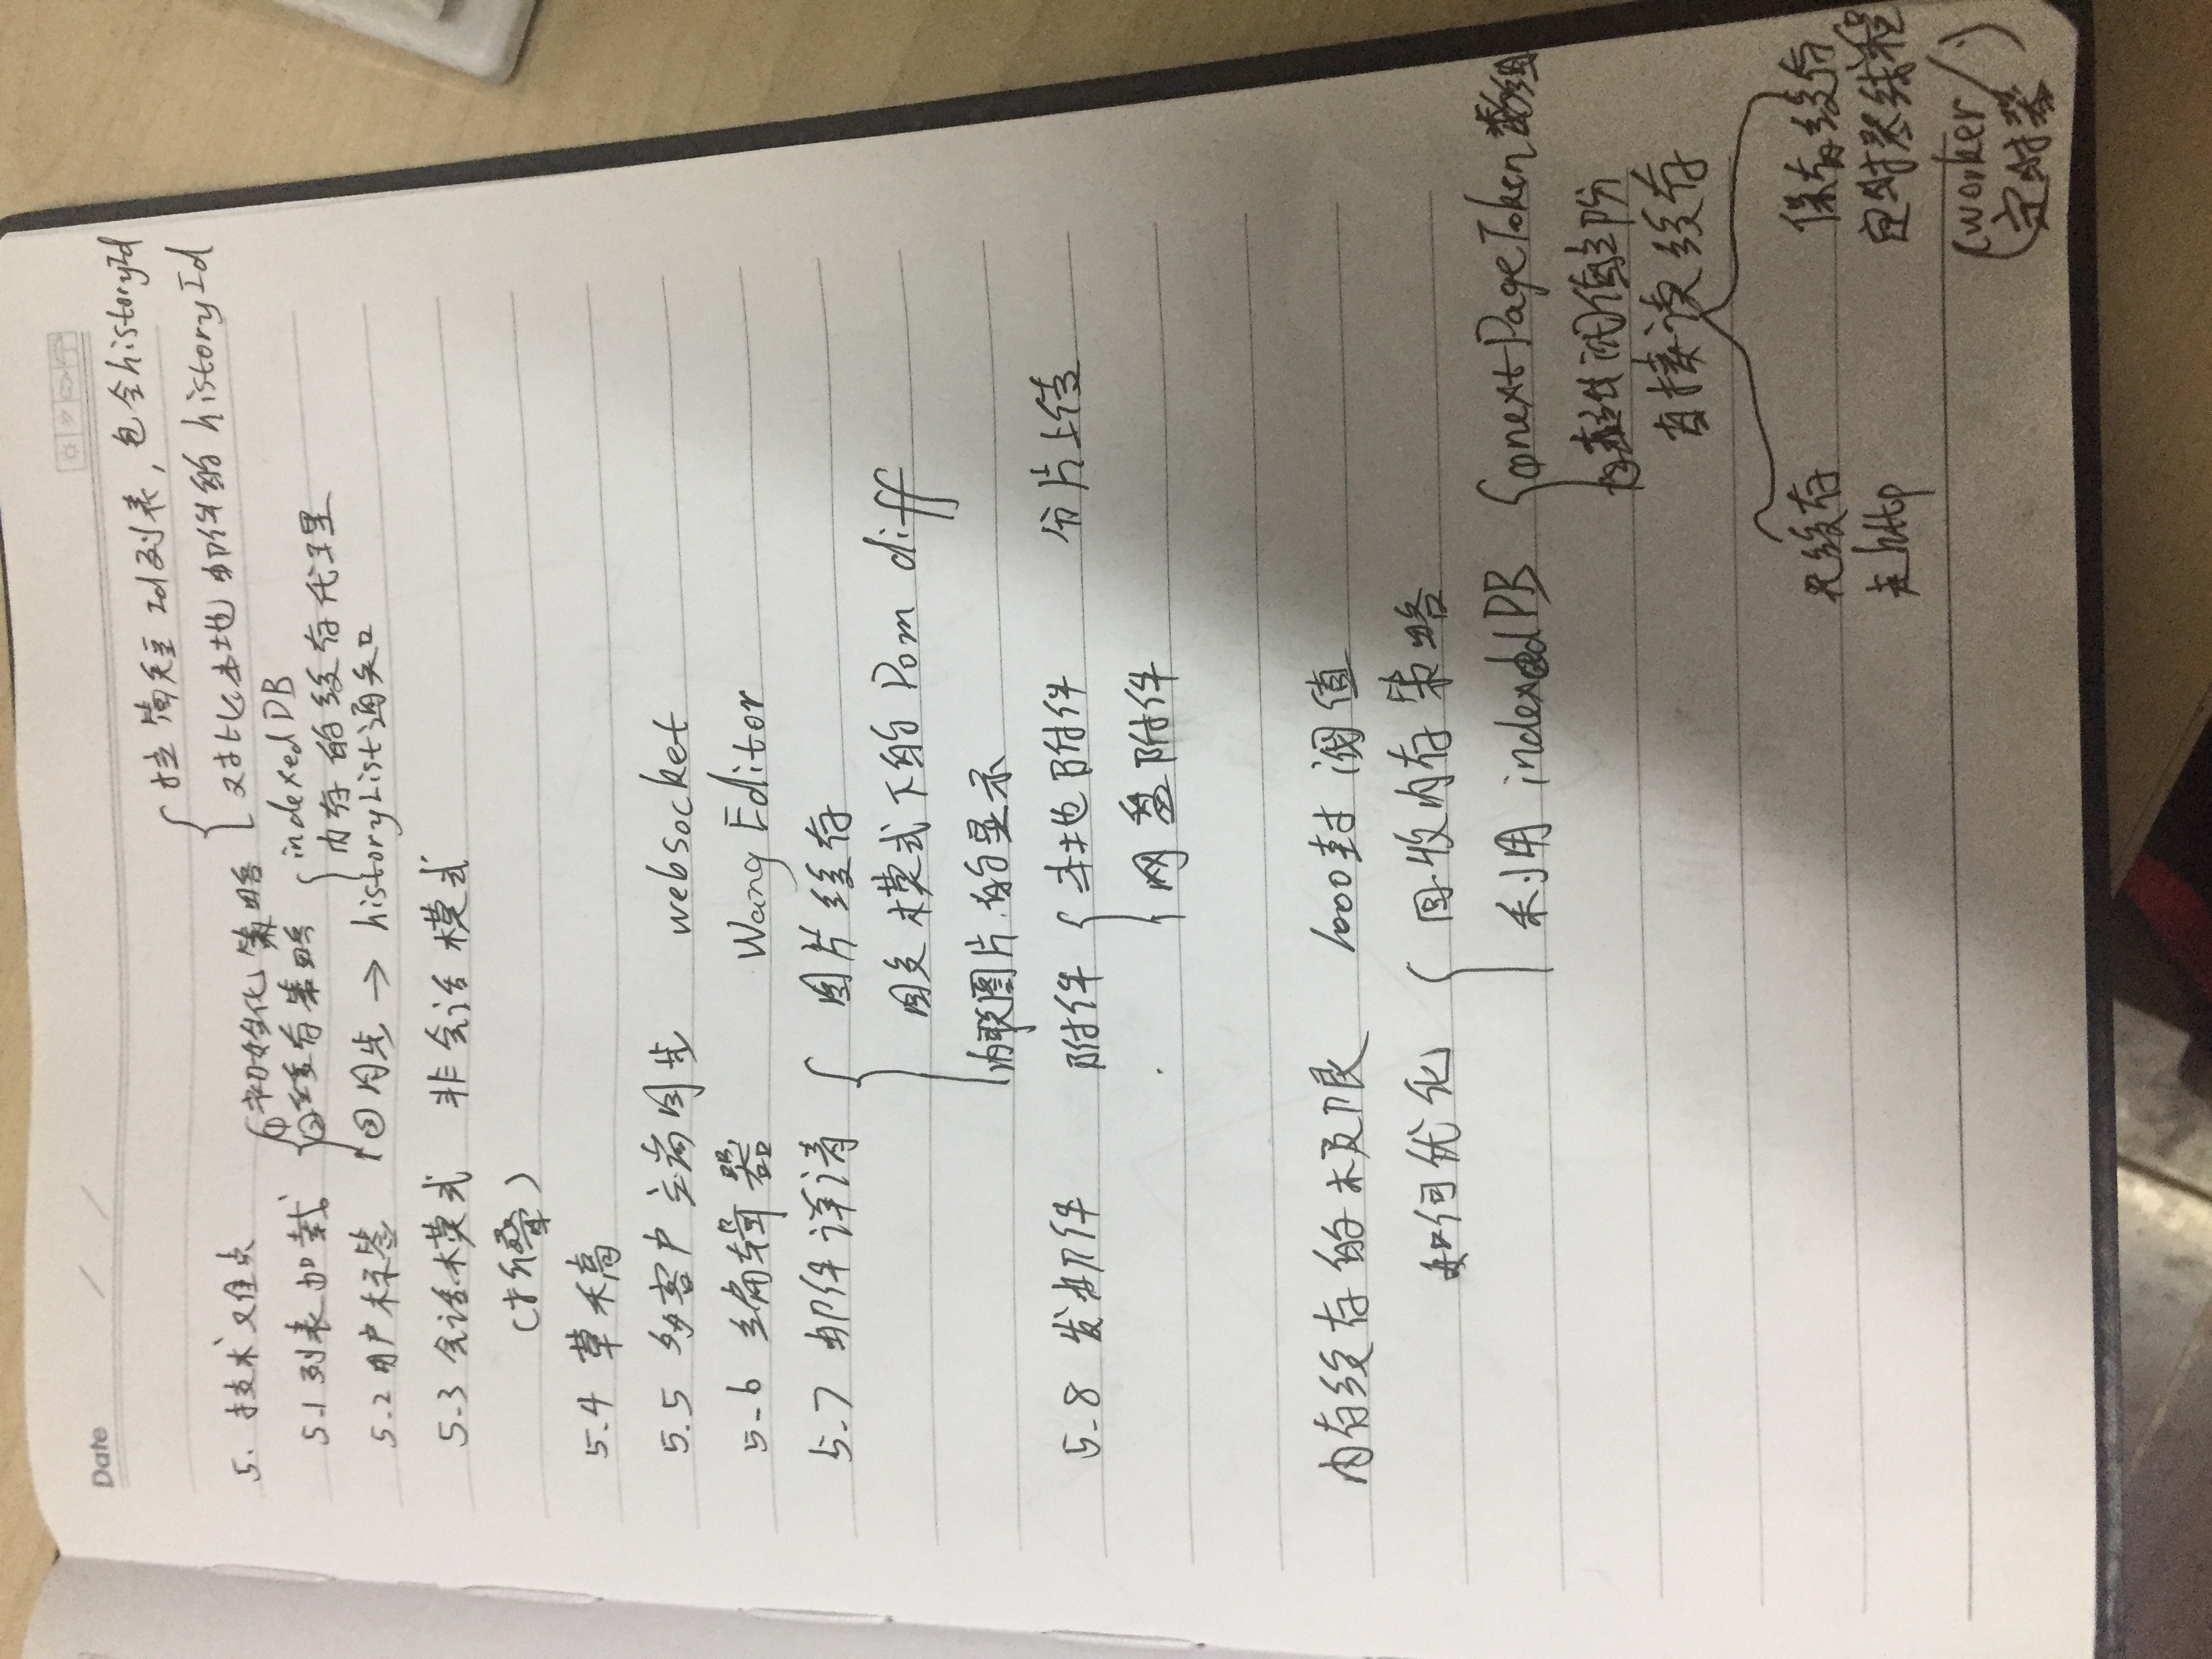 Date / /
拉简短Id列表，包含historyId
对比本地邮件的historyId
5. 技术难点
①初始化策略
5.1 列表加载 ②缓存策略
indexedDB
内存的缓存代理
5.2 用户标签 ③同步 → historyList通知
5.3 会话模式 非会话模式
（折叠）
5.4 草稿
5.5 多客户端同步 websocket
5.6 编辑器 Wang Editor
5.7 邮件详请 图片缓存
模式下的 Dom diff
内联图片的显示
5.8 发邮件 附件 本地附件 分片上传
网盘附件
内存缓存的极限 1000封 阈值
如何优化 回收内存策略
利用 indexedDB ①nextPageToken数组
阈值部份
直接读缓存
无缓存 保存缓存
走http 定时器线程
(worker/
定时器)